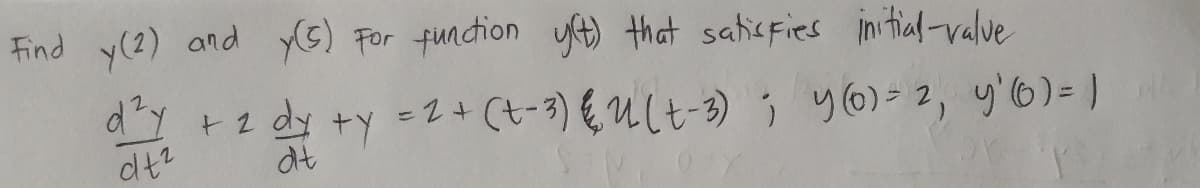 Find y(2) and y(5) For function y(t) that satisfies initial-value
d²y/dt² + 2 dy/dt + y = 2 + (t-3) U(t-3) ; y(0) = 2, y'(0) = 1